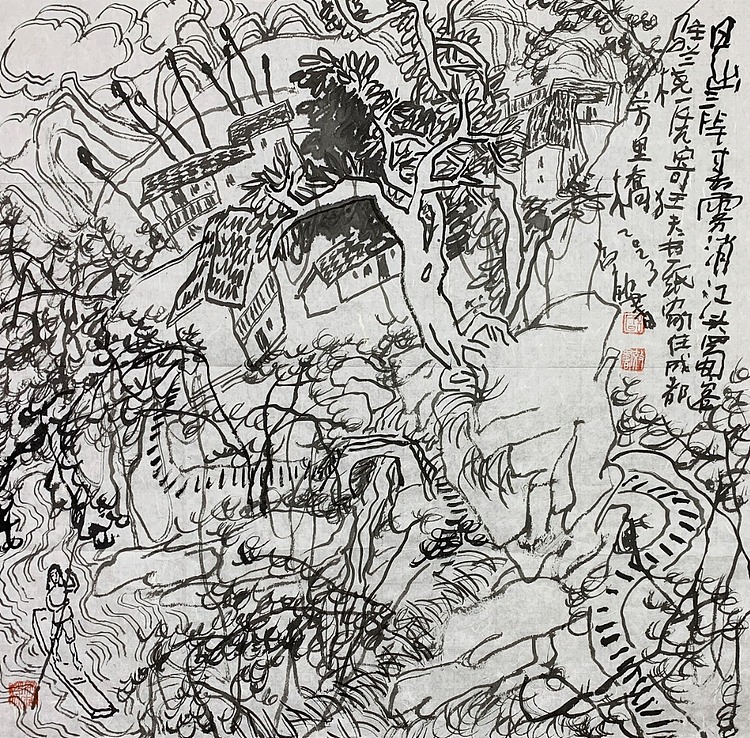 日出三竿春雾消江头蜀客
驻兰桡凭寄狂夫书一纸家住成都
万里橋 二〇二三